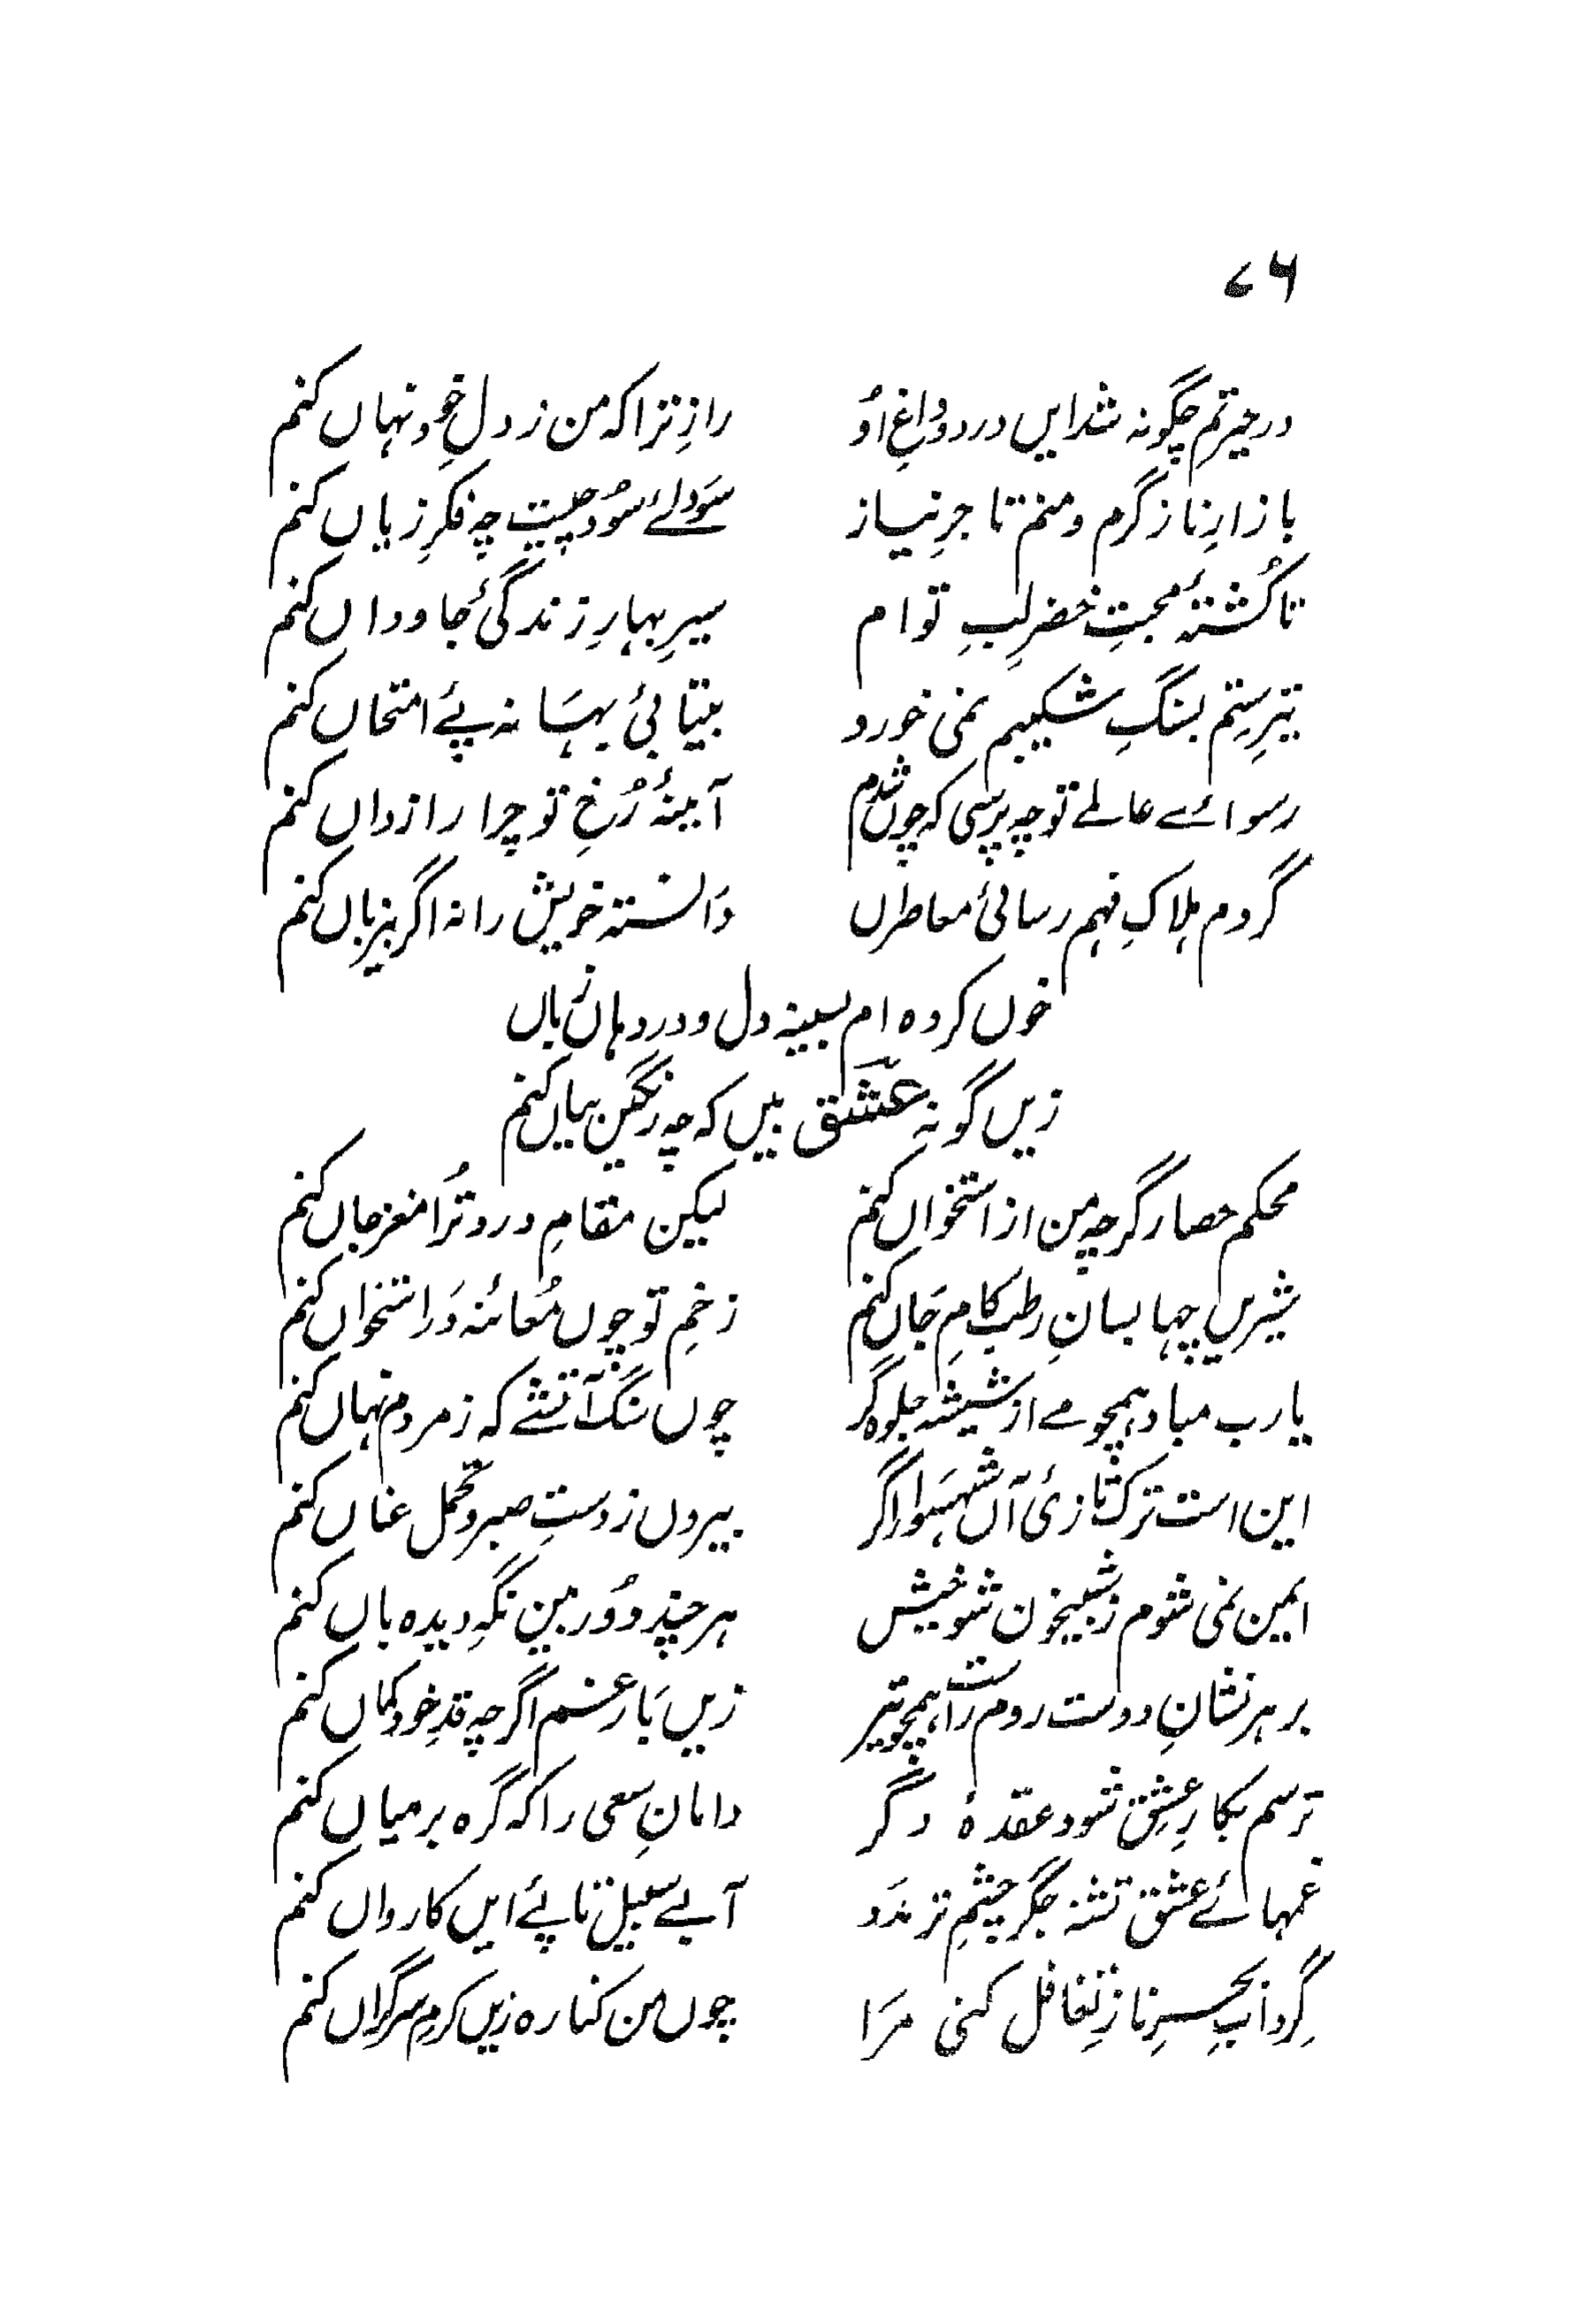 ۷۶
در حیرتم چگونه شد ایں درد و داغِ اوُ رازِ ترا که من ز دلِ خود نہاں کنم
بازارِ ناز گرم و منم تاجرِ نیاز سَودائے سُود چیست چه فکرِ زیاں کنم
تا کُشتۂ محبتِ خضرِ لبِ تو ام سیرِ بہارِ زندگیٔ جاوداں کنم
تیرِ ستم بسنگِ شکیبم نمی خورد بیتابیٔ بہَانه پئے امتحاں کنم
رسوائے عالمے تو چه پرسی که چوں شدم آئینۂ رُخِ تو چرا رازداں کنم
گردم ہلاکِ فہم رسائیٔ معاطراں دَانسته خویش را نه اگر بیزباں کنم
خوں کرده ام بسینه دل و در دہاں زباں
زیں گونه عشقؔ بیں که چه رنگین بیاں کنم
محکم حصار گرچه من از استخواں کنم لیکن مقامِ درد تُرا مغز جاں کنم
شیریں چہا بسانِ رطب کامِ جَاں کنم زخمِ تو چوں مُعائنه دَر استخواں کنم
یارب مباد ہمچو مے از شیشه جلوه گر چوں سنگ آتشے که ز مردم نہاں کنم
این است ترک تازیٔ آں شہسَوار اگر بیروں ز دستِ صبر و تحمّل عناں کنم
ایمن نمی شوم ز شبیخون شوخیش ہر چند دوُربین نگہِ دیده باں کنم
بر ہر نشانِ دوست روم راست ہمچو تیر زیں بَار غم اگرچه قدِ خود کماں کنم
ترسم بکارِ عشِق شود عقدۂ دگر دامانِ سعی را که گره بر میاں کنم
غمہائے عشق تشنه جگر چشمِ تر مدَد آبے سبیل تا پئے ایں کارواں کنم
گردابِ بحسرِ نازِ تغافل کنی مرَا چوں من کناره زیں کرمِ سرگراں کنم